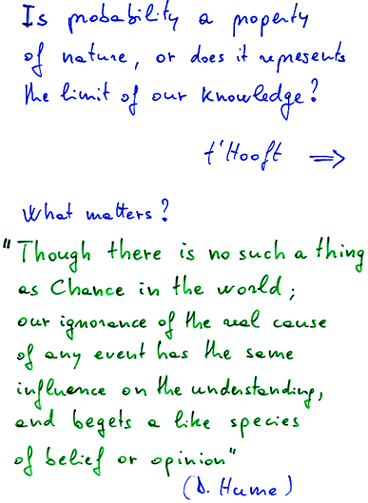 Is probability a property
of nature, or does it represents
the limit of our knowledge?
t'Hooft ⇒
What matters?
"Though there is no such a thing
as Chance in the world;
our ignorance of the real cause
of any event has the same
influence on the understanding,
and begets a like species
of belief or opinion"
(D. Hume)